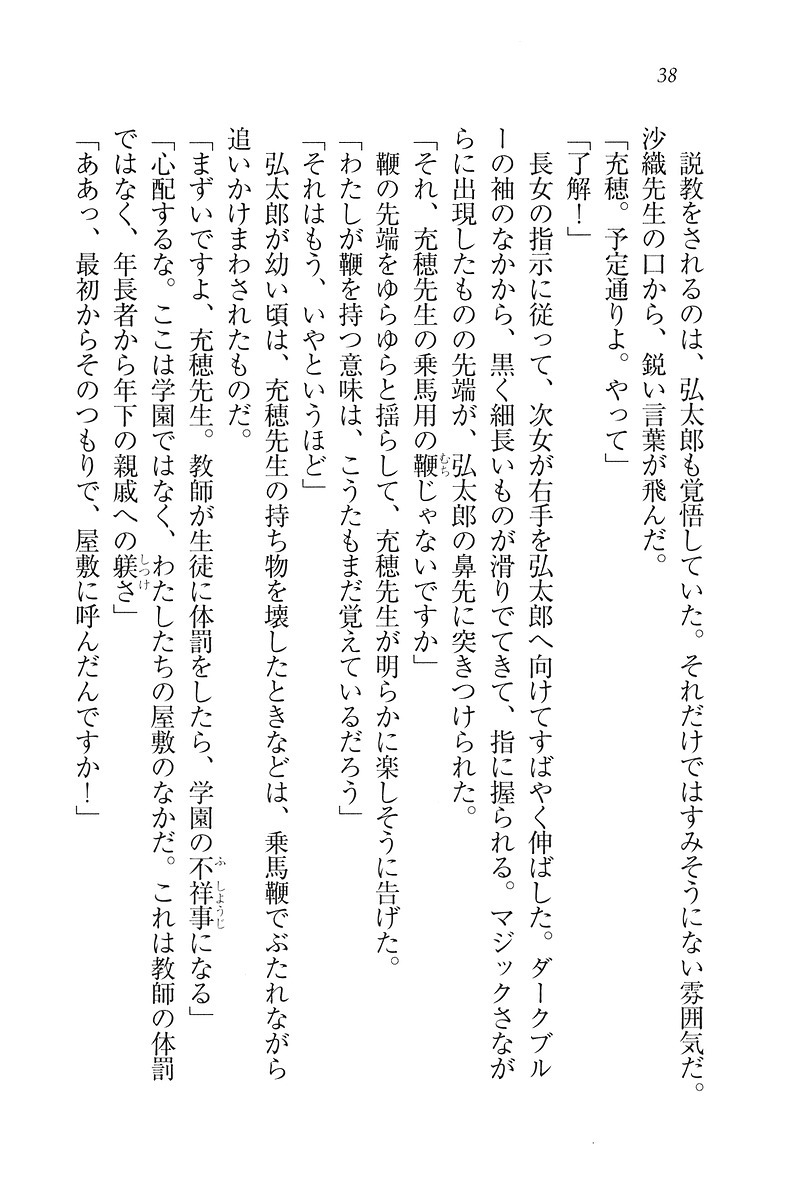 38
説教をされるのは、弘太郎も覚悟していた。それだけではすみそうにない雰囲気だ。
沙織先生の口から、鋭い言葉が飛んだ。
「充穂。予定通りよ。やって」
「了解！」
長女の指示に従って、次女が右手を弘太郎へ向けてすばやく伸ばした。ダークブル
ーの袖のなかから、黒く細長いものが滑りでてきて、指に握られる。マジックさなが
らに出現したものの先端が、弘太郎の鼻先に突きつけられた。
「それ、充穂先生の乗馬用の鞭むちじゃないですか」
鞭の先端をゆらゆらと揺らして、充穂先生が明らかに楽しそうに告げた。
「わたしが鞭を持つ意味は、こうたもまだ覚えているだろう」
「それはもう、いやというほど」
弘太郎が幼い頃は、充穂先生の持ち物を壊したときなどは、乗馬鞭でぶたれながら
追いかけまわされたものだ。
「まずいですよ、充穂先生。教師が生徒に体罰をしたら、学園の不祥事ふしようじになる」
「心配するな。ここは学園ではなく、わたしたちの屋敷のなかだ。これは教師の体罰
ではなく、年長者から年下の親戚への躾しつけさ」
「ああっ、最初からそのつもりで、屋敷に呼んだんですか！」